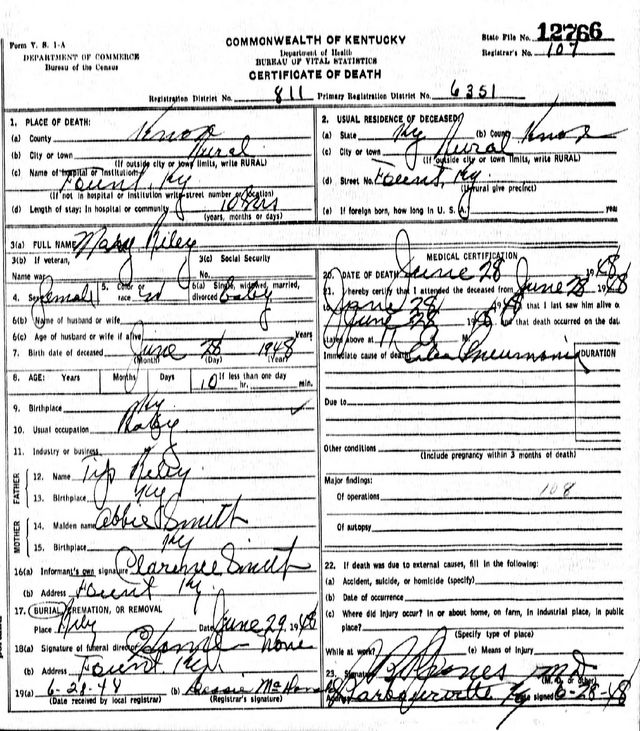 Form V. S. 1-A
DEPARTMENT OF COMMERCE
Bureau of the Census
COMMONWEALTH OF KENTUCKY
Department of Health
BUREAU OF VITAL STATISTICS
CERTIFICATE OF DEATH
State File No. 12766
Registrar's No. 107
Registration District No. 811 Primary Registration District No. 6351
1. PLACE OF DEATH:
(a) County Knox
(b) City or town Rural
(If outside city or town limits, write RURAL)
(c) Name of hospital or institution
Fount, Ky
(If not in hospital or institution write street number or location)
(d) Length of stay: In hospital or community 10 hrs
(years, months or days)
2. USUAL RESIDENCE OF DECEASED:
(a) State Ky (b) County Knox
(c) City or town Rural
(If outside city or town limits, write RURAL)
(d) Street No. Fount, Ky
(If rural give precinct)
(e) If foreign born, how long in U. S. A. years
3(a) FULL NAME Mary Riley
3(b) If veteran,
Name war
3(c) Social Security
No.
4. Sex Female 5. Color or race W 6(a) Single, widowed, married, divorced baby
6(b) Name of husband or wife
6(c) Age of husband or wife if alive Years
7. Birth date of deceased June 28 1948
(Month) (Day) (Year)
8. AGE: Years Months Days If less than one day
10 hr. min.
9. Birthplace Ky
10. Usual occupation Baby
11. Industry or business
FATHER
12. Name Tip Riley
13. Birthplace Ky
MOTHER
14. Maiden name Abbie Smith
15. Birthplace Ky
16(a) Informant's own signature Clarence Smith
(b) Address Fount Ky
17. BURIAL, CREMATION, OR REMOVAL
Place Riley Date June 29 1948
18(a) Signature of funeral director Home - none
(b) Address Fount, Ky
19(a) 6-28-48 (b) Bessie
(Date received by local registrar) (Registrar's signature)
MEDICAL CERTIFICATION
20. DATE OF DEATH June 28 1948
21. I hereby certify that I attended the deceased from June 28 1948
to June 28 1948 that I last saw him alive o
June 28 1948 and that death occurred on the dat
stated above at 11 M.
Immediate cause of death Pneumonia
DURATION
Due to
Other conditions
(Include pregnancy within 3 months of death)
Major findings:
Of operations 108
Of autopsy
22. If death was due to external causes, fill in the following:
(a) Accident, suicide, or homicide (specify)
(b) Date of occurrence
(c) Where did injury occur? In or about home, on farm, in industrial place, in public
place?
(Specify type of place)
While at work? (e) Means of Injury
23. Signature B Jones MD
(M. D. or other)
Address Barbourville Ky Date signed 6-28-48